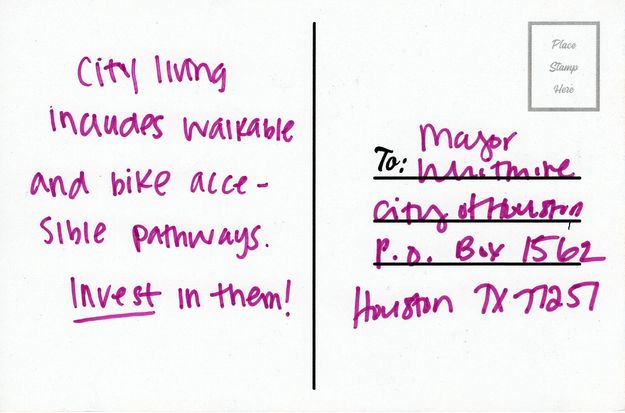 City living
includes walkable
and bike acce-
sible pathways.
Invest in them!
Place
Stamp
Here
To: Mayor
Whitmire
City of Houston
P.O. Box 1562
Houston TX 77251